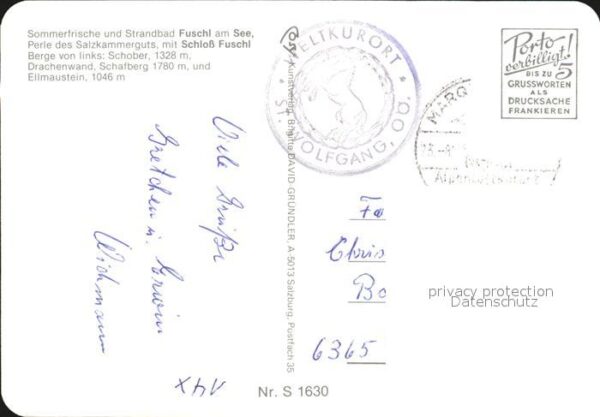 Sommerfrische und Strandbad Fuschl am See,
Perle des Salzkammerguts, mit Schloß Fuschl
Berge von links: Schober, 1328 m,
Drachenwand, Schafberg 1780 m, und
Ellmaustein, 1046 m
WELTKURORT
ST. WOLFGANG, OÖ.
Porto
verbilligt!
BIS ZU 5
GRUSSWORTEN
ALS
DRUCKSACHE
FRANKIEREN
Kunstverlag, Brigitte DAVID GRÜNDLER, A-5013 Salzburg, Postfach 35
Viele Grüße
Gretchen u. Erwin
Wichmann
14X
Fa
Chris
Bo
6365
privacy protection
Datenschutz
Nr. S 1630